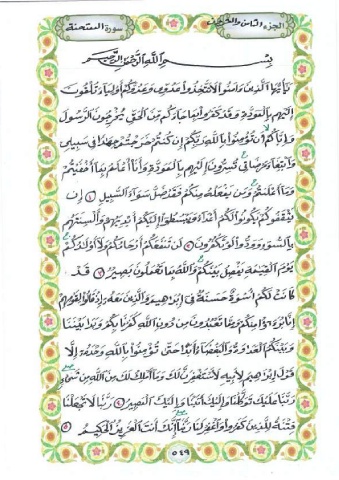 الجزء الثامن والعشرون
سورة الممتحنة
بسم الله الرحمن الرحيم
يأيها الذين ءامنوا لا تتخذوا عدوى وعدوكم أولياء تلقون
إليهم بالمودة وقد كفروا بما جاءكم من الحق يخرجون الرسول
وإياكم أن تؤمنوا بالله ربكم إن كنتم خرجتم جهادا فى سبيلى
وابتغاء مرضاتى تسرون إليهم بالمودة وأنا أعلم بما أخفيتم
وما أعلنتم ومن يفعله منكم فقد ضل سواء السبيل ١ إن
يثقفوكم يكونوا لكم أعداء ويبسطوا إليكم أيديهم وألسنتهم
بالسوء وودوا لو تكفرون ٢ لن تنفعكم أرحامكم ولا أولادكم
يوم القيمة يفصل بينكم والله بما تعملون بصير ٣ قد
كانت لكم أسوة حسنة فى إبرهيم والذين معه إذ قالوا لقومهم
إنا برءؤا منكم ومما تعبدون من دون الله كفرنا بكم وبدا بيننا
وبينكم العدوة والبغضاء أبدا حتى تؤمنوا بالله وحده إلا
قول إبرهيم لأبيه لأستغفرن لك وما أملك لك من الله من شىء
ربنا عليك توكلنا وإليك أنبنا وإليك المصير ٤ ربنا لا تجعلنا
فتنة للذين كفروا واغفر لنا ربنا إنك أنت العزيز الحكيم ٥
٥٤٩